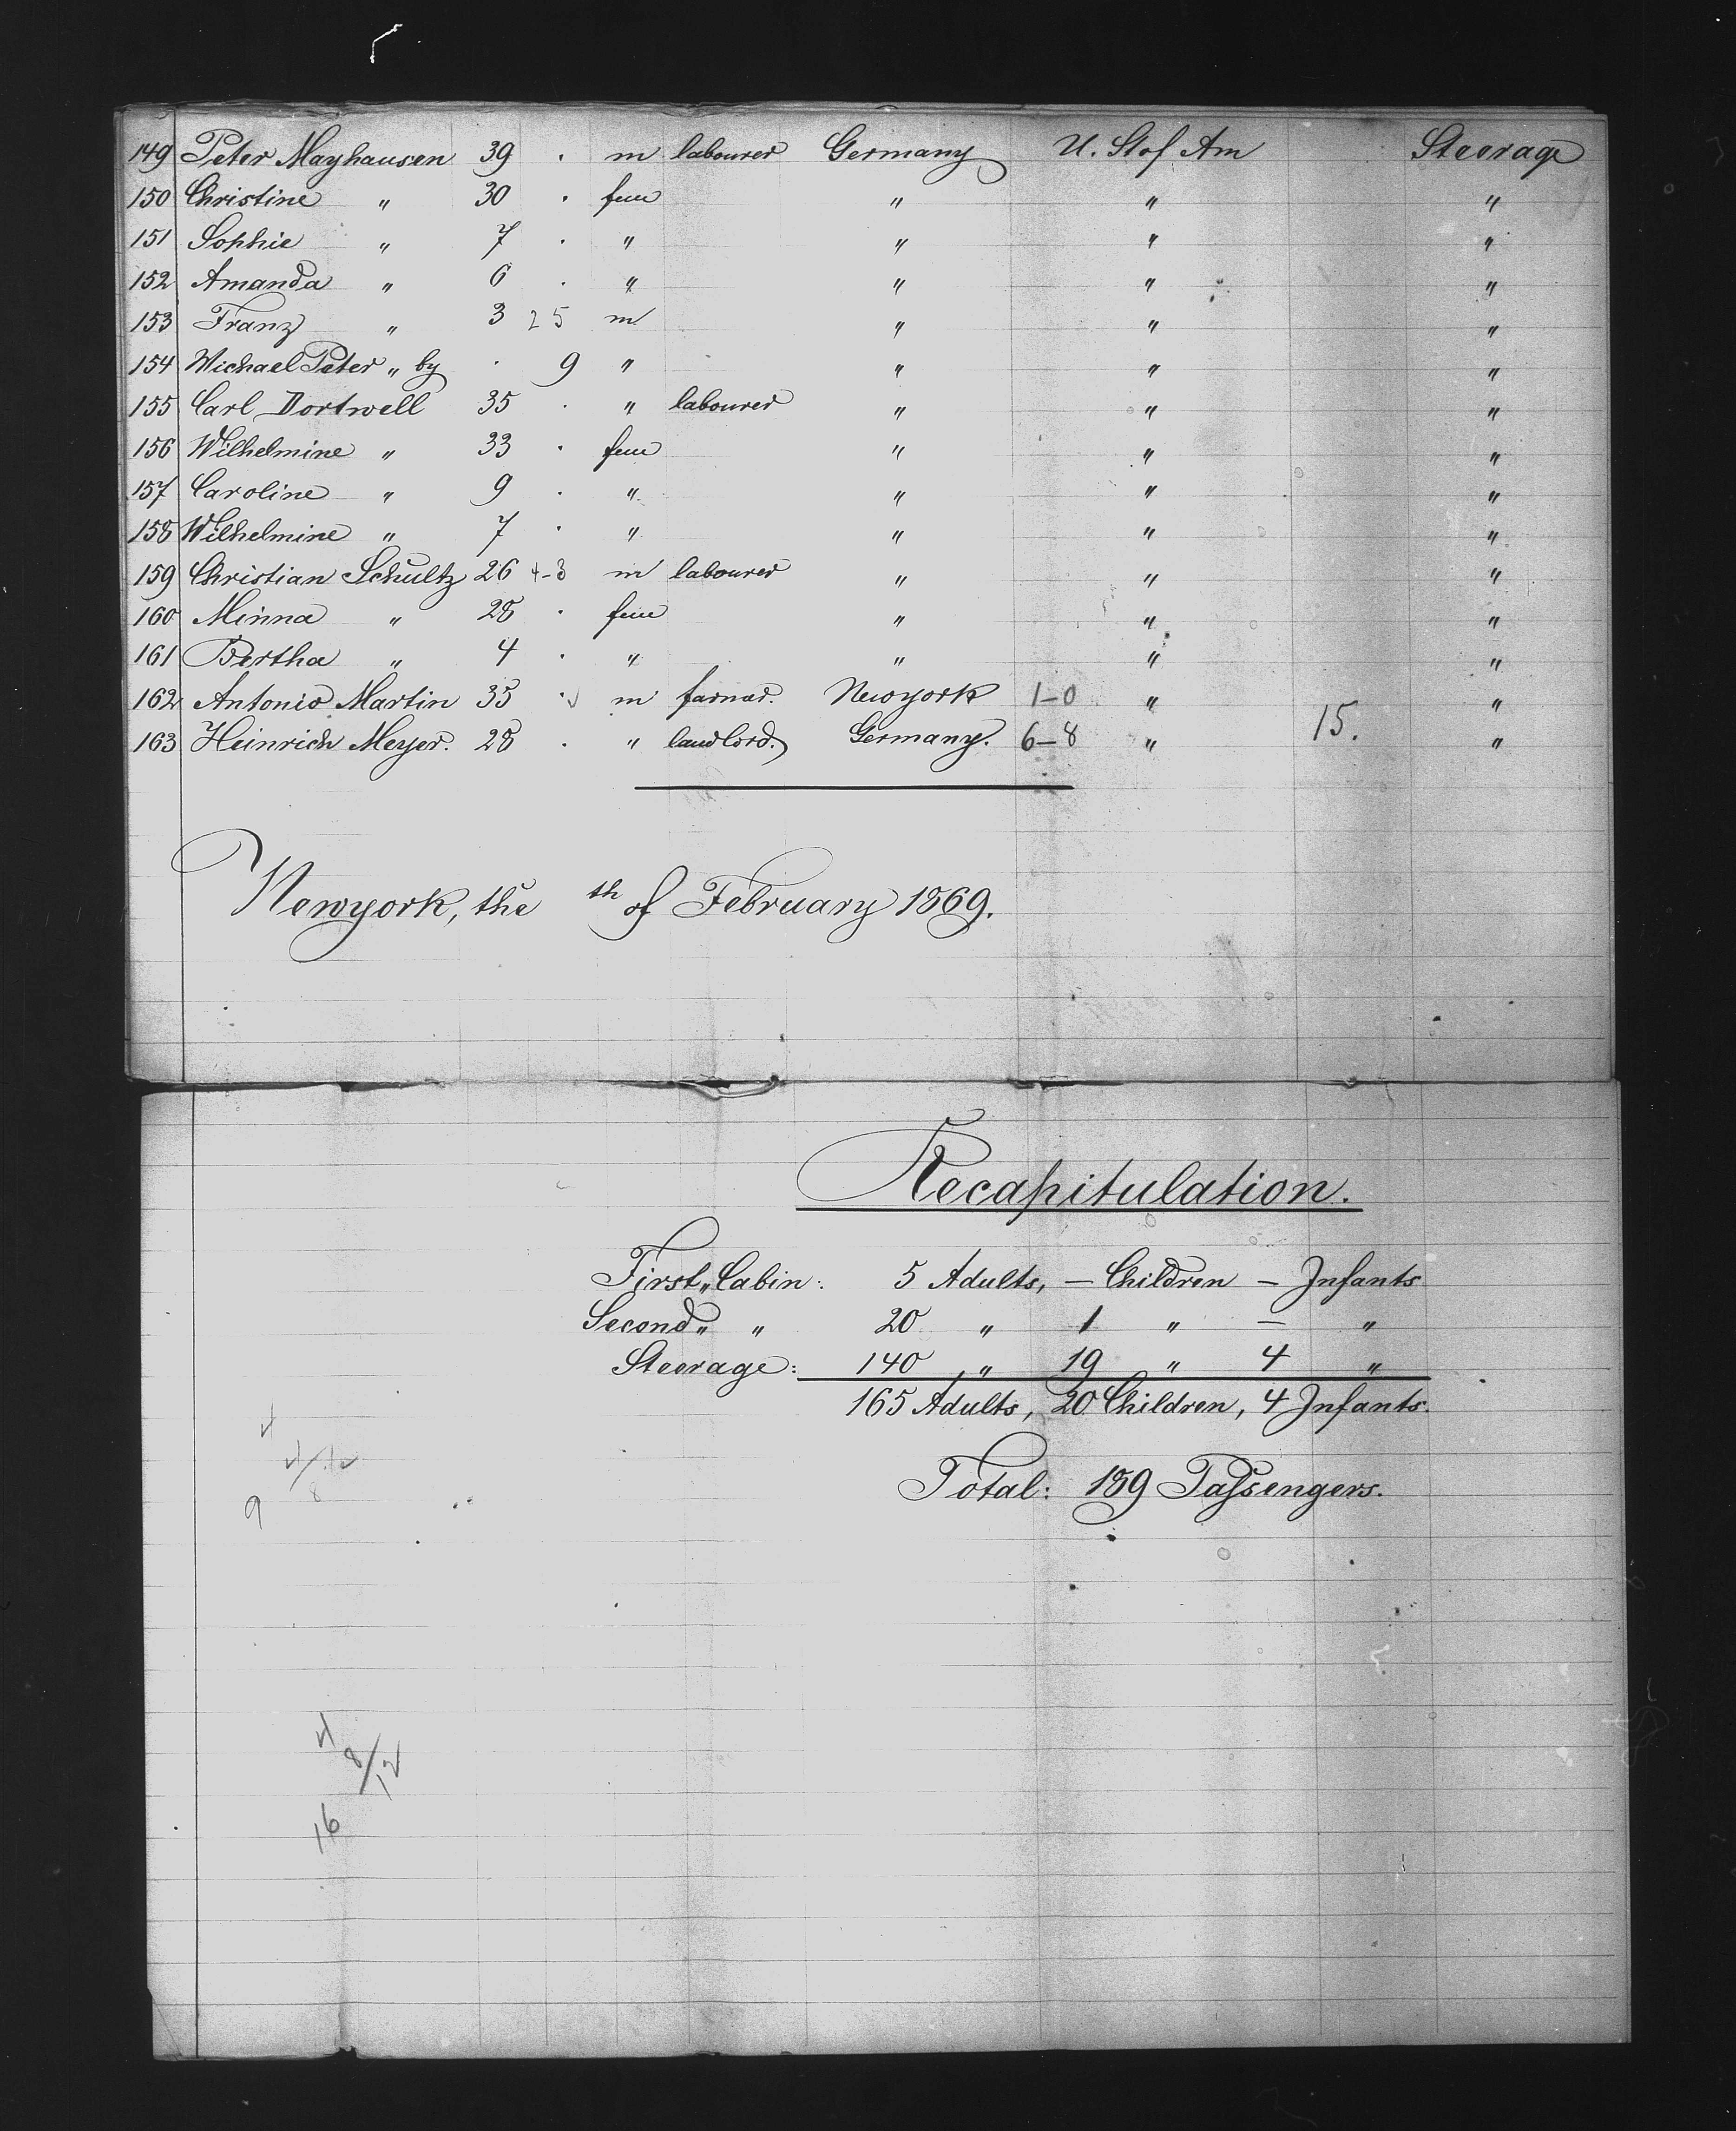 149 Peter Mayhausen 39 . m labourer Germany U. St of Am Steerage
150 Christine " 30 . fem " " "
151 Sophie " 7 . " " " "
152 Amanda " 6 . " " " "
153 Franz " 3 25 m " " "
154 Michael Peter " by . 9 " " " "
155 Carl Dortwell 35 . " labourer " " "
156 Wilhelmine " 33 . fem " " "
157 Caroline " 9 . " " " "
158 Wilhelmine " 7 . " " " "
159 Christian Schultz 26 4-3 m labourer " " "
160 Minna " 28 . fem " " "
161 Bertha " 4 . " " " "
162 Antonio Martin 35 . m farmer. Newyork 1-0 " "
163 Heinrich Meyer. 28 . " landlord. Germany. 6-8 " 15. "
Newyork, the th of February 1869.
Recapitulation.
First " Cabin: 5 Adults, — Children — Infants
Second " " 20 " 1 " — "
Steerage: 140 " 19 " 4 "
165 Adults, 20 Children, 4 Infants.
Total: 189 Passengers.
9
8/12
16